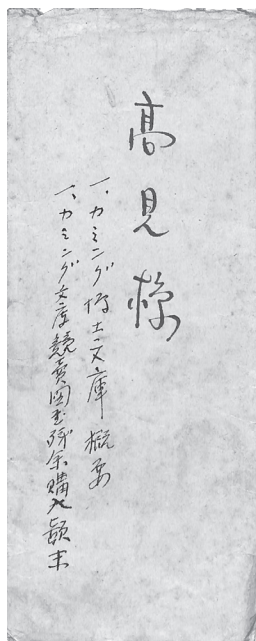 髙見様
一、カミング博士文庫概要
一、カミング文庫競売図書残余購入顛末